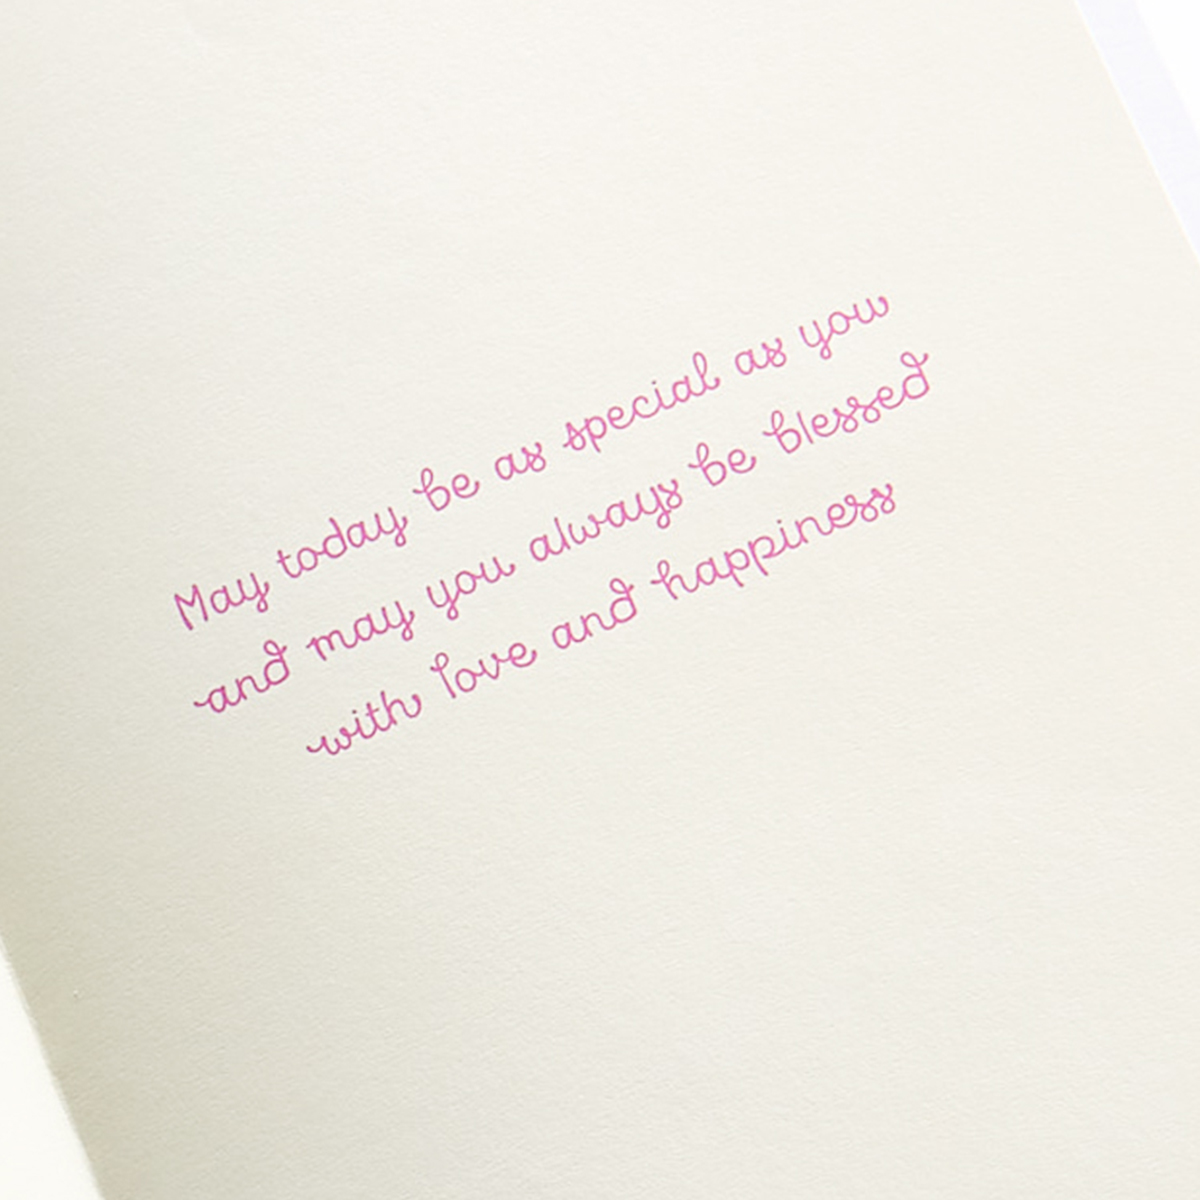 May today be as special as you
and may you always be blessed
with love and happiness